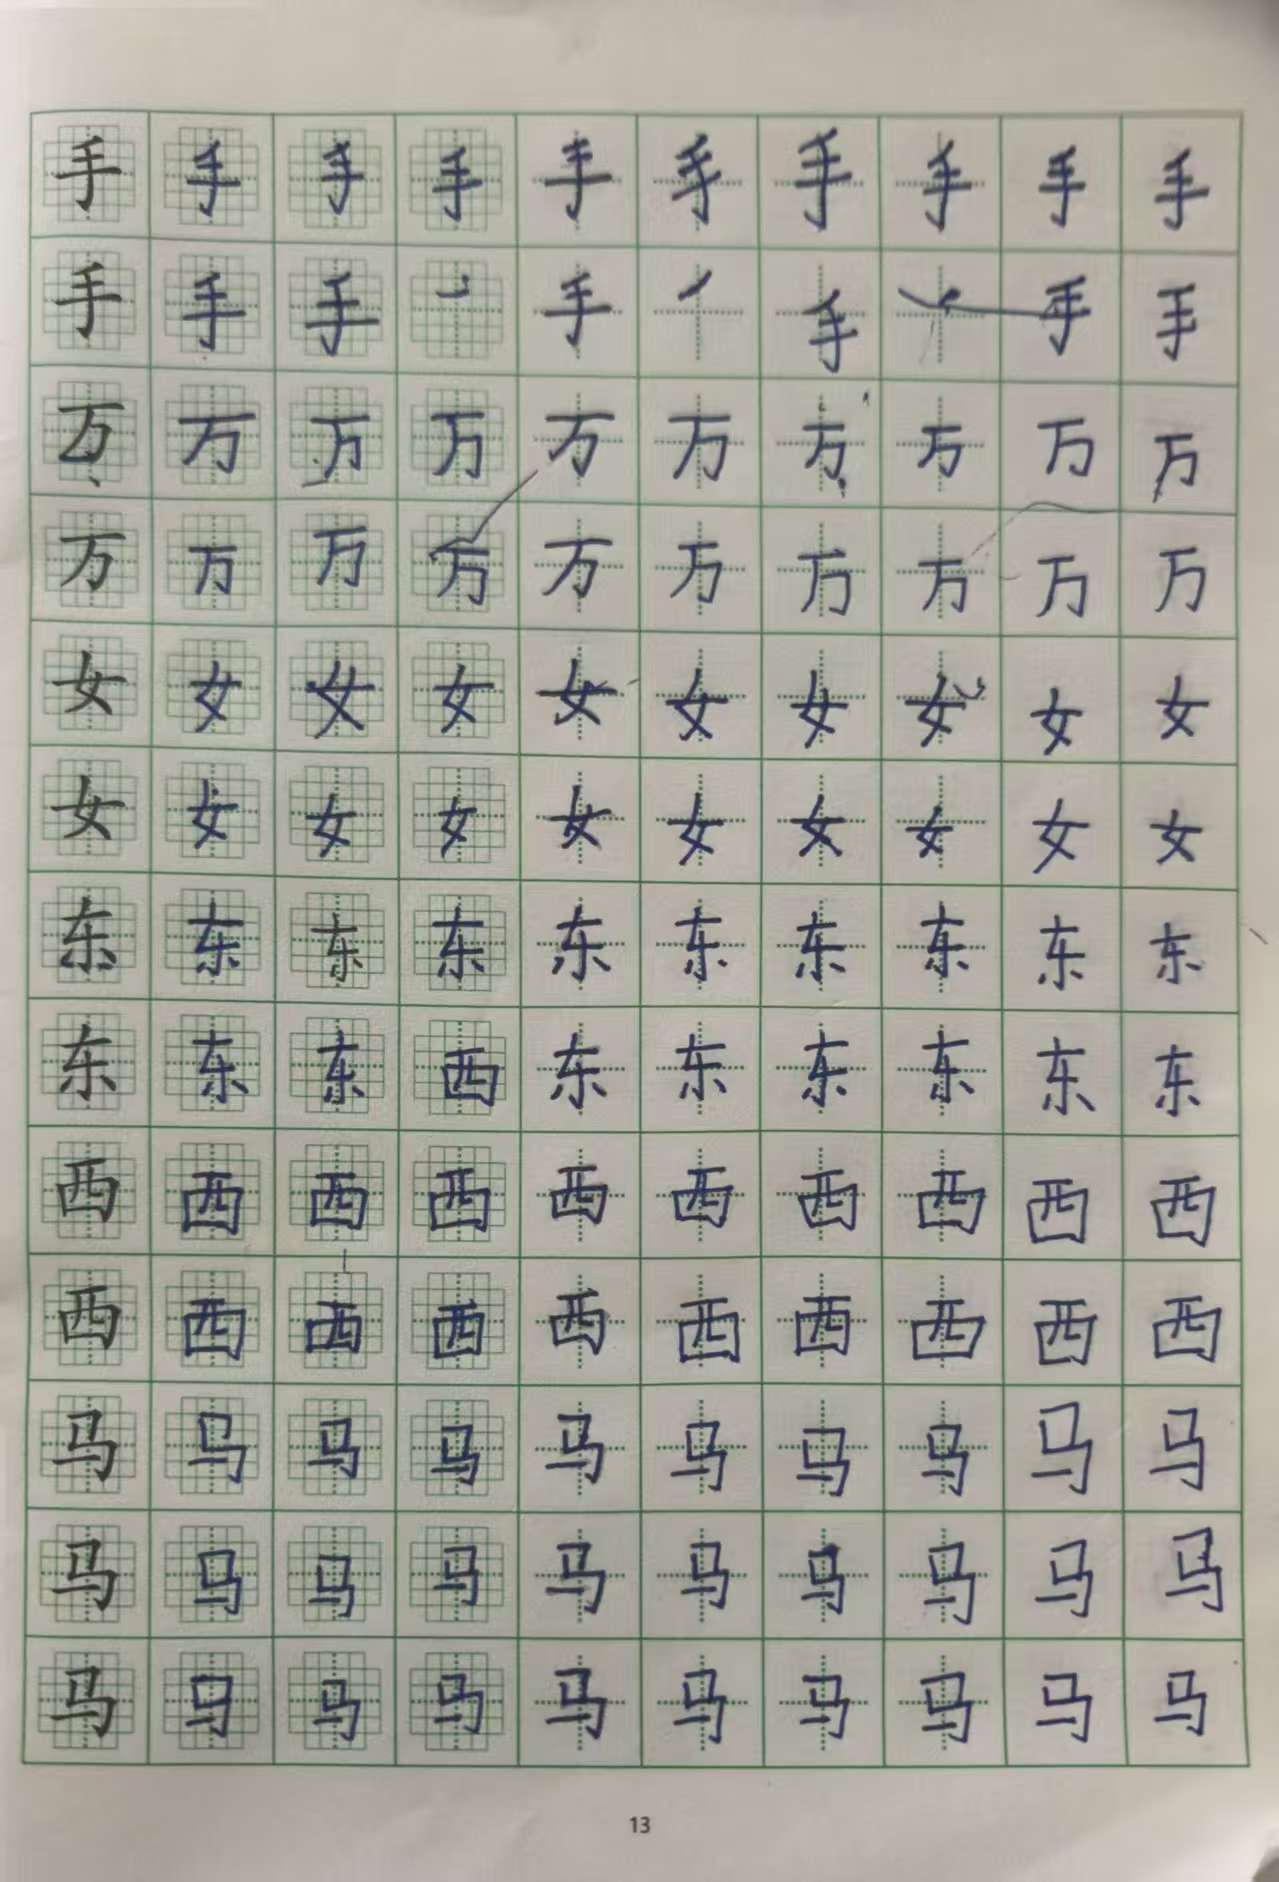 手手手手手手手手手手
手手手手手手手
万万万万万万万万万万
万万万万万万万万万万
女女女女女女女女女女
女女女女女女女女女女
东东东东东东东东东东
东东东西东东东东东东
西西西西西西西西西西
西西西西西西西西西西
马马马马马马马马马马
马马马马马马马马马马
马马马马马马马马马马
13